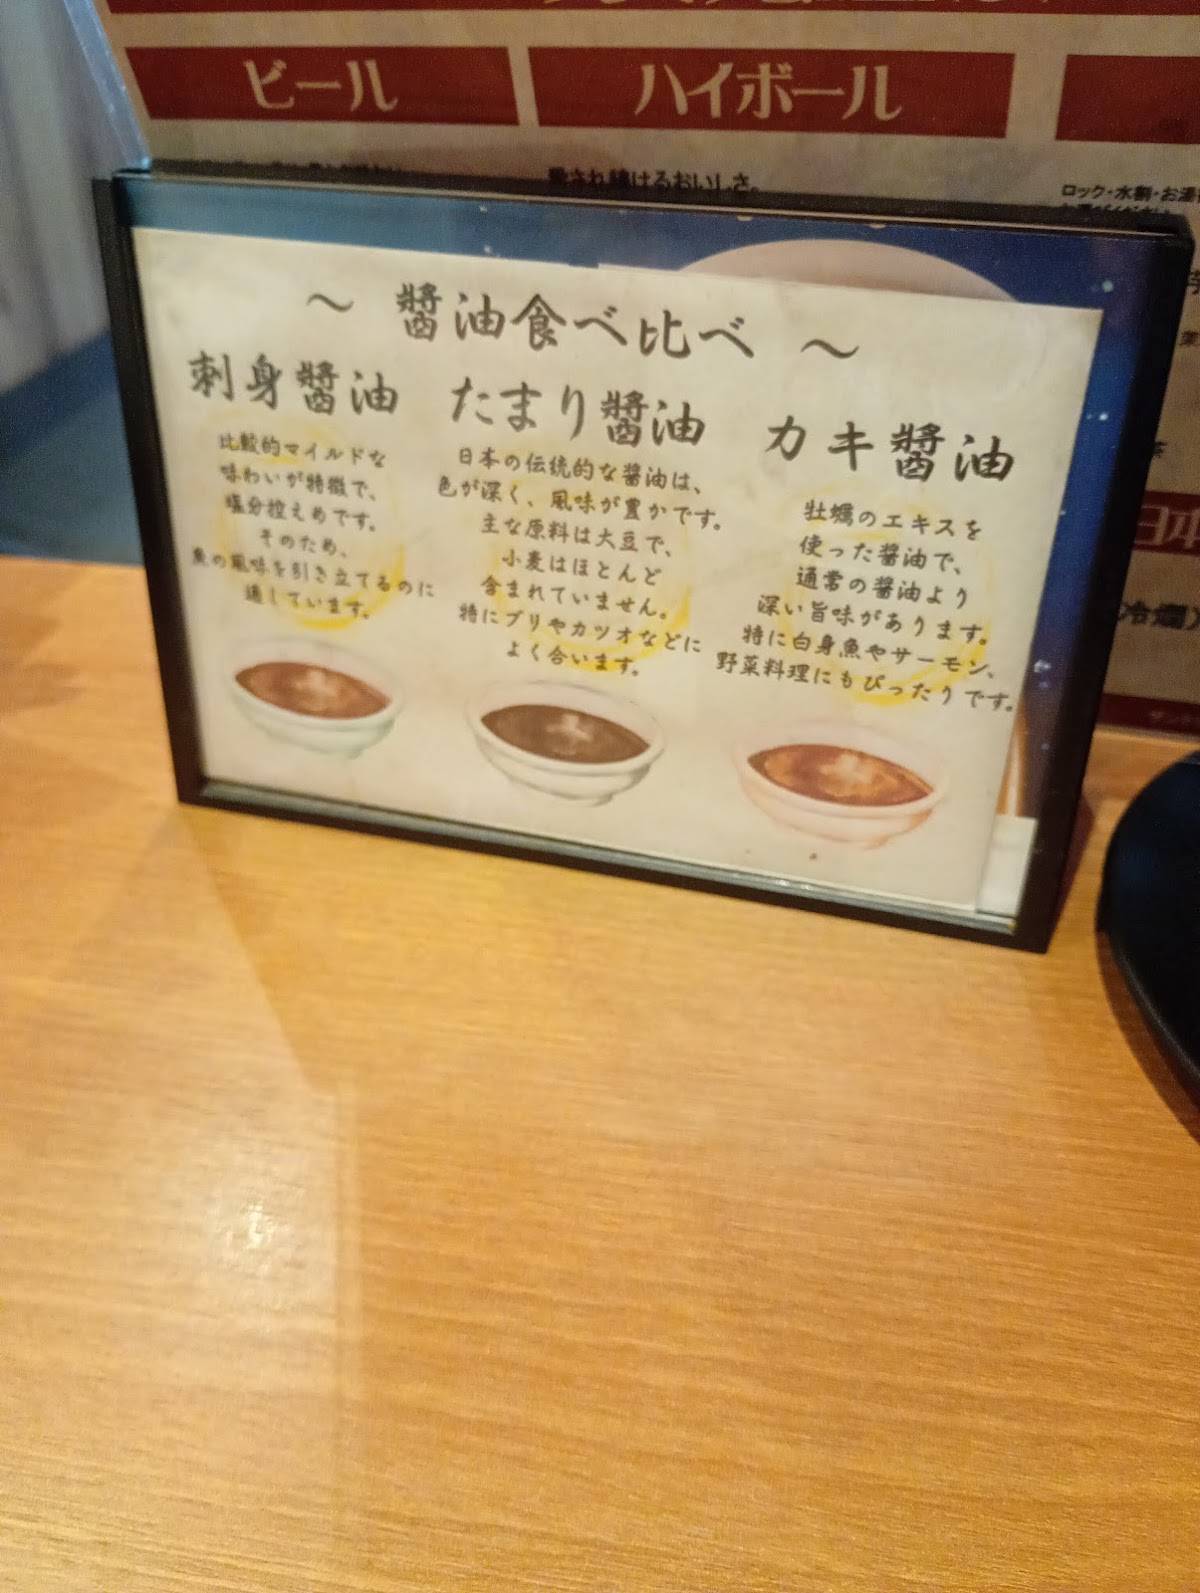 ビール
ハイボール
愛され続けるおいしさ。
ロック・水割・お湯
～ 醬油食べ比べ ～
刺身醬油
比較的マイルドな
味わいが特徴で、
塩分控えめです。
そのため、
魚の風味を引き立てるのに
適しています。
たまり醬油
日本の伝統的な醤油は、
色が深く、風味が豊かです。
主な原料は大豆で、
小麦はほとんど
含まれていません。
特にブリやカツオなどに
よく合います。
カキ醬油
牡蠣のエキスを
使った醤油で、
通常の醤油より
深い旨味があります。
特に白身魚やサーモン、
野菜料理にもぴったりです。
日本
冷燗